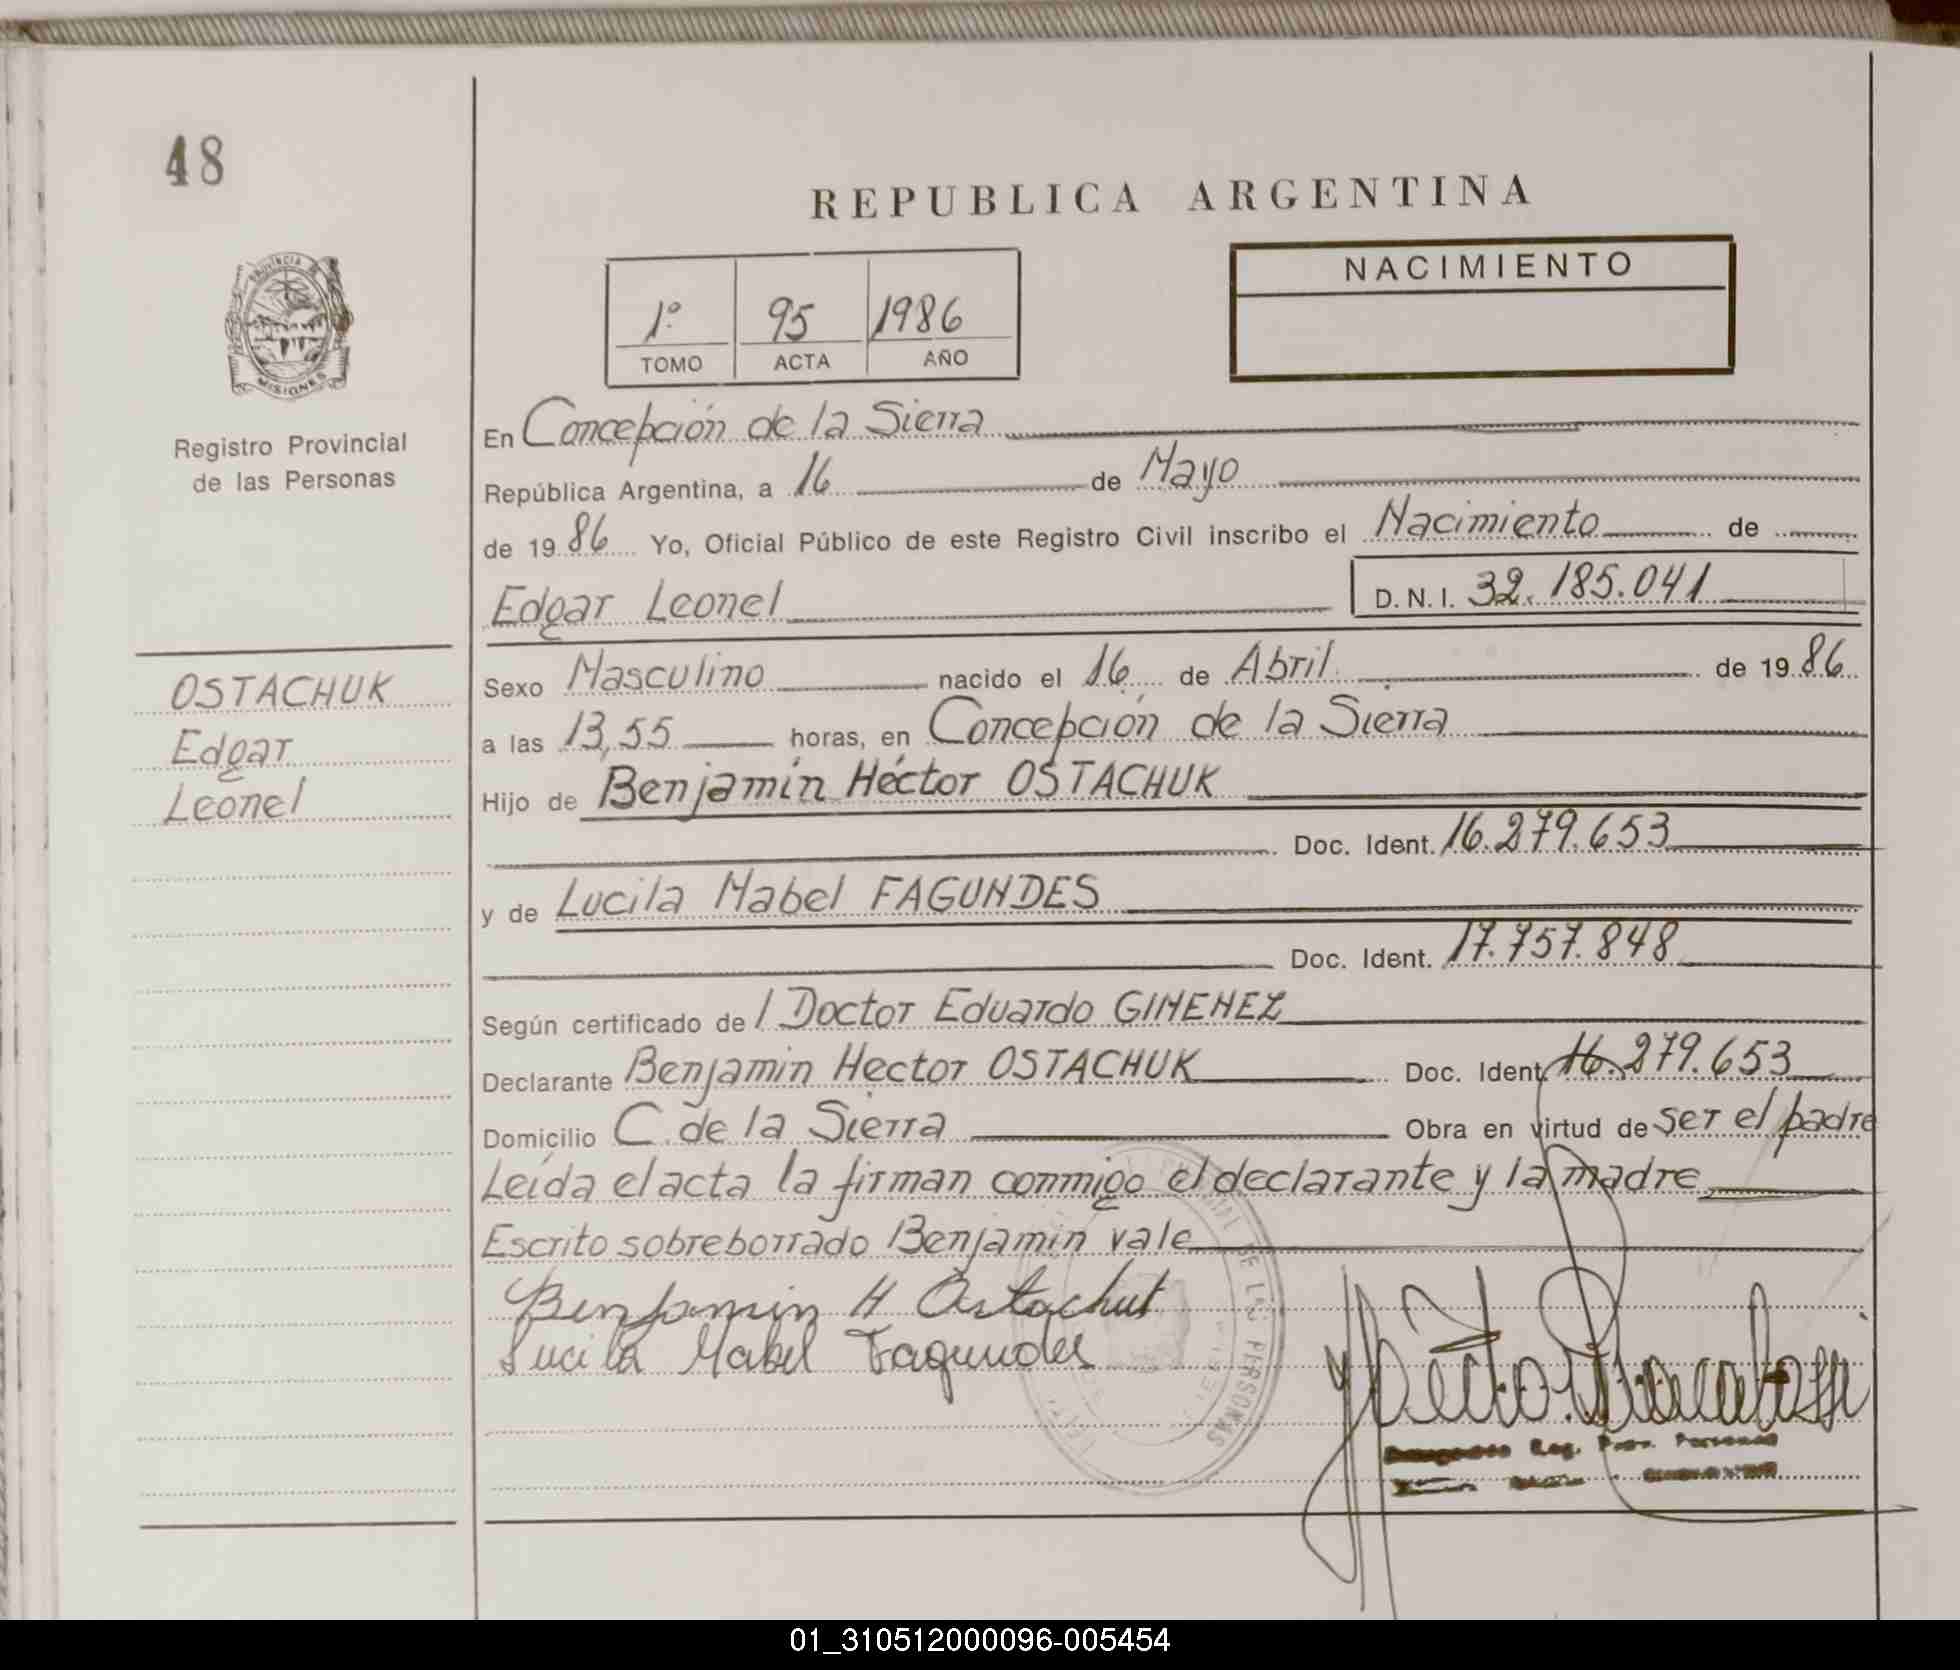 48
REPUBLICA ARGENTINA
PROVINCIA DE
MISIONES
Registro Provincial
de las Personas
1º 95 1986
TOMO ACTA AÑO
NACIMIENTO
En Concepción de la Sierra
República Argentina, a 16 de Mayo
de 1986 Yo, Oficial Público de este Registro Civil inscribo el Nacimiento de
Edgar Leonel D.N.I. 32.185.041
OSTACHUK
Edgar
Leonel
Sexo Masculino nacido el 16 de Abril de 1986
a las 13,55 horas, en Concepción de la Sierra
Hijo de Benjamín Héctor OSTACHUK
Doc. Ident. 16.279.653
y de Lucila Mabel FAGUNDES
Doc. Ident. 17.757.848
Según certificado del Doctor Eduardo GIMENEZ
Declarante Benjamin Hector OSTACHUK Doc. Ident. 16.279.653
Domicilio C. de la Sierra Obra en virtud de ser el padre
Leída el acta la firman conmigo el declarante y la madre
Escrito sobreborrado Benjamin vale
Benjamin H Ostachuk
Lucila Mabel Fagundes
DE LAS PERSONAS
Reg. Prov. Personas
01_310512000096-005454